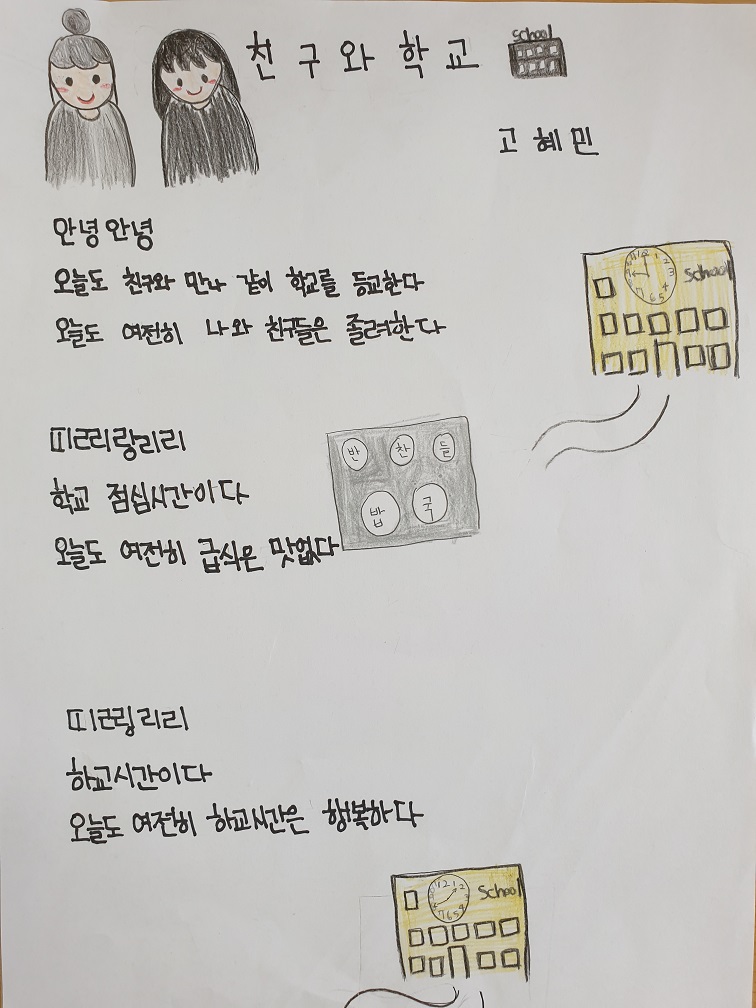 친구와 학교
school
고혜민
안녕안녕
오늘도 친구와 만나 같이 학교를 등교한다
오늘도 여전히 나와 친구들은 졸려한다
school
띠리리랑리리
학교 점심시간이다
오늘도 여전히 급식은 맛없다
반 찬 들
밥 국
띠리링리리
하교시간이다
오늘도 여전히 하교시간은 행복하다
School